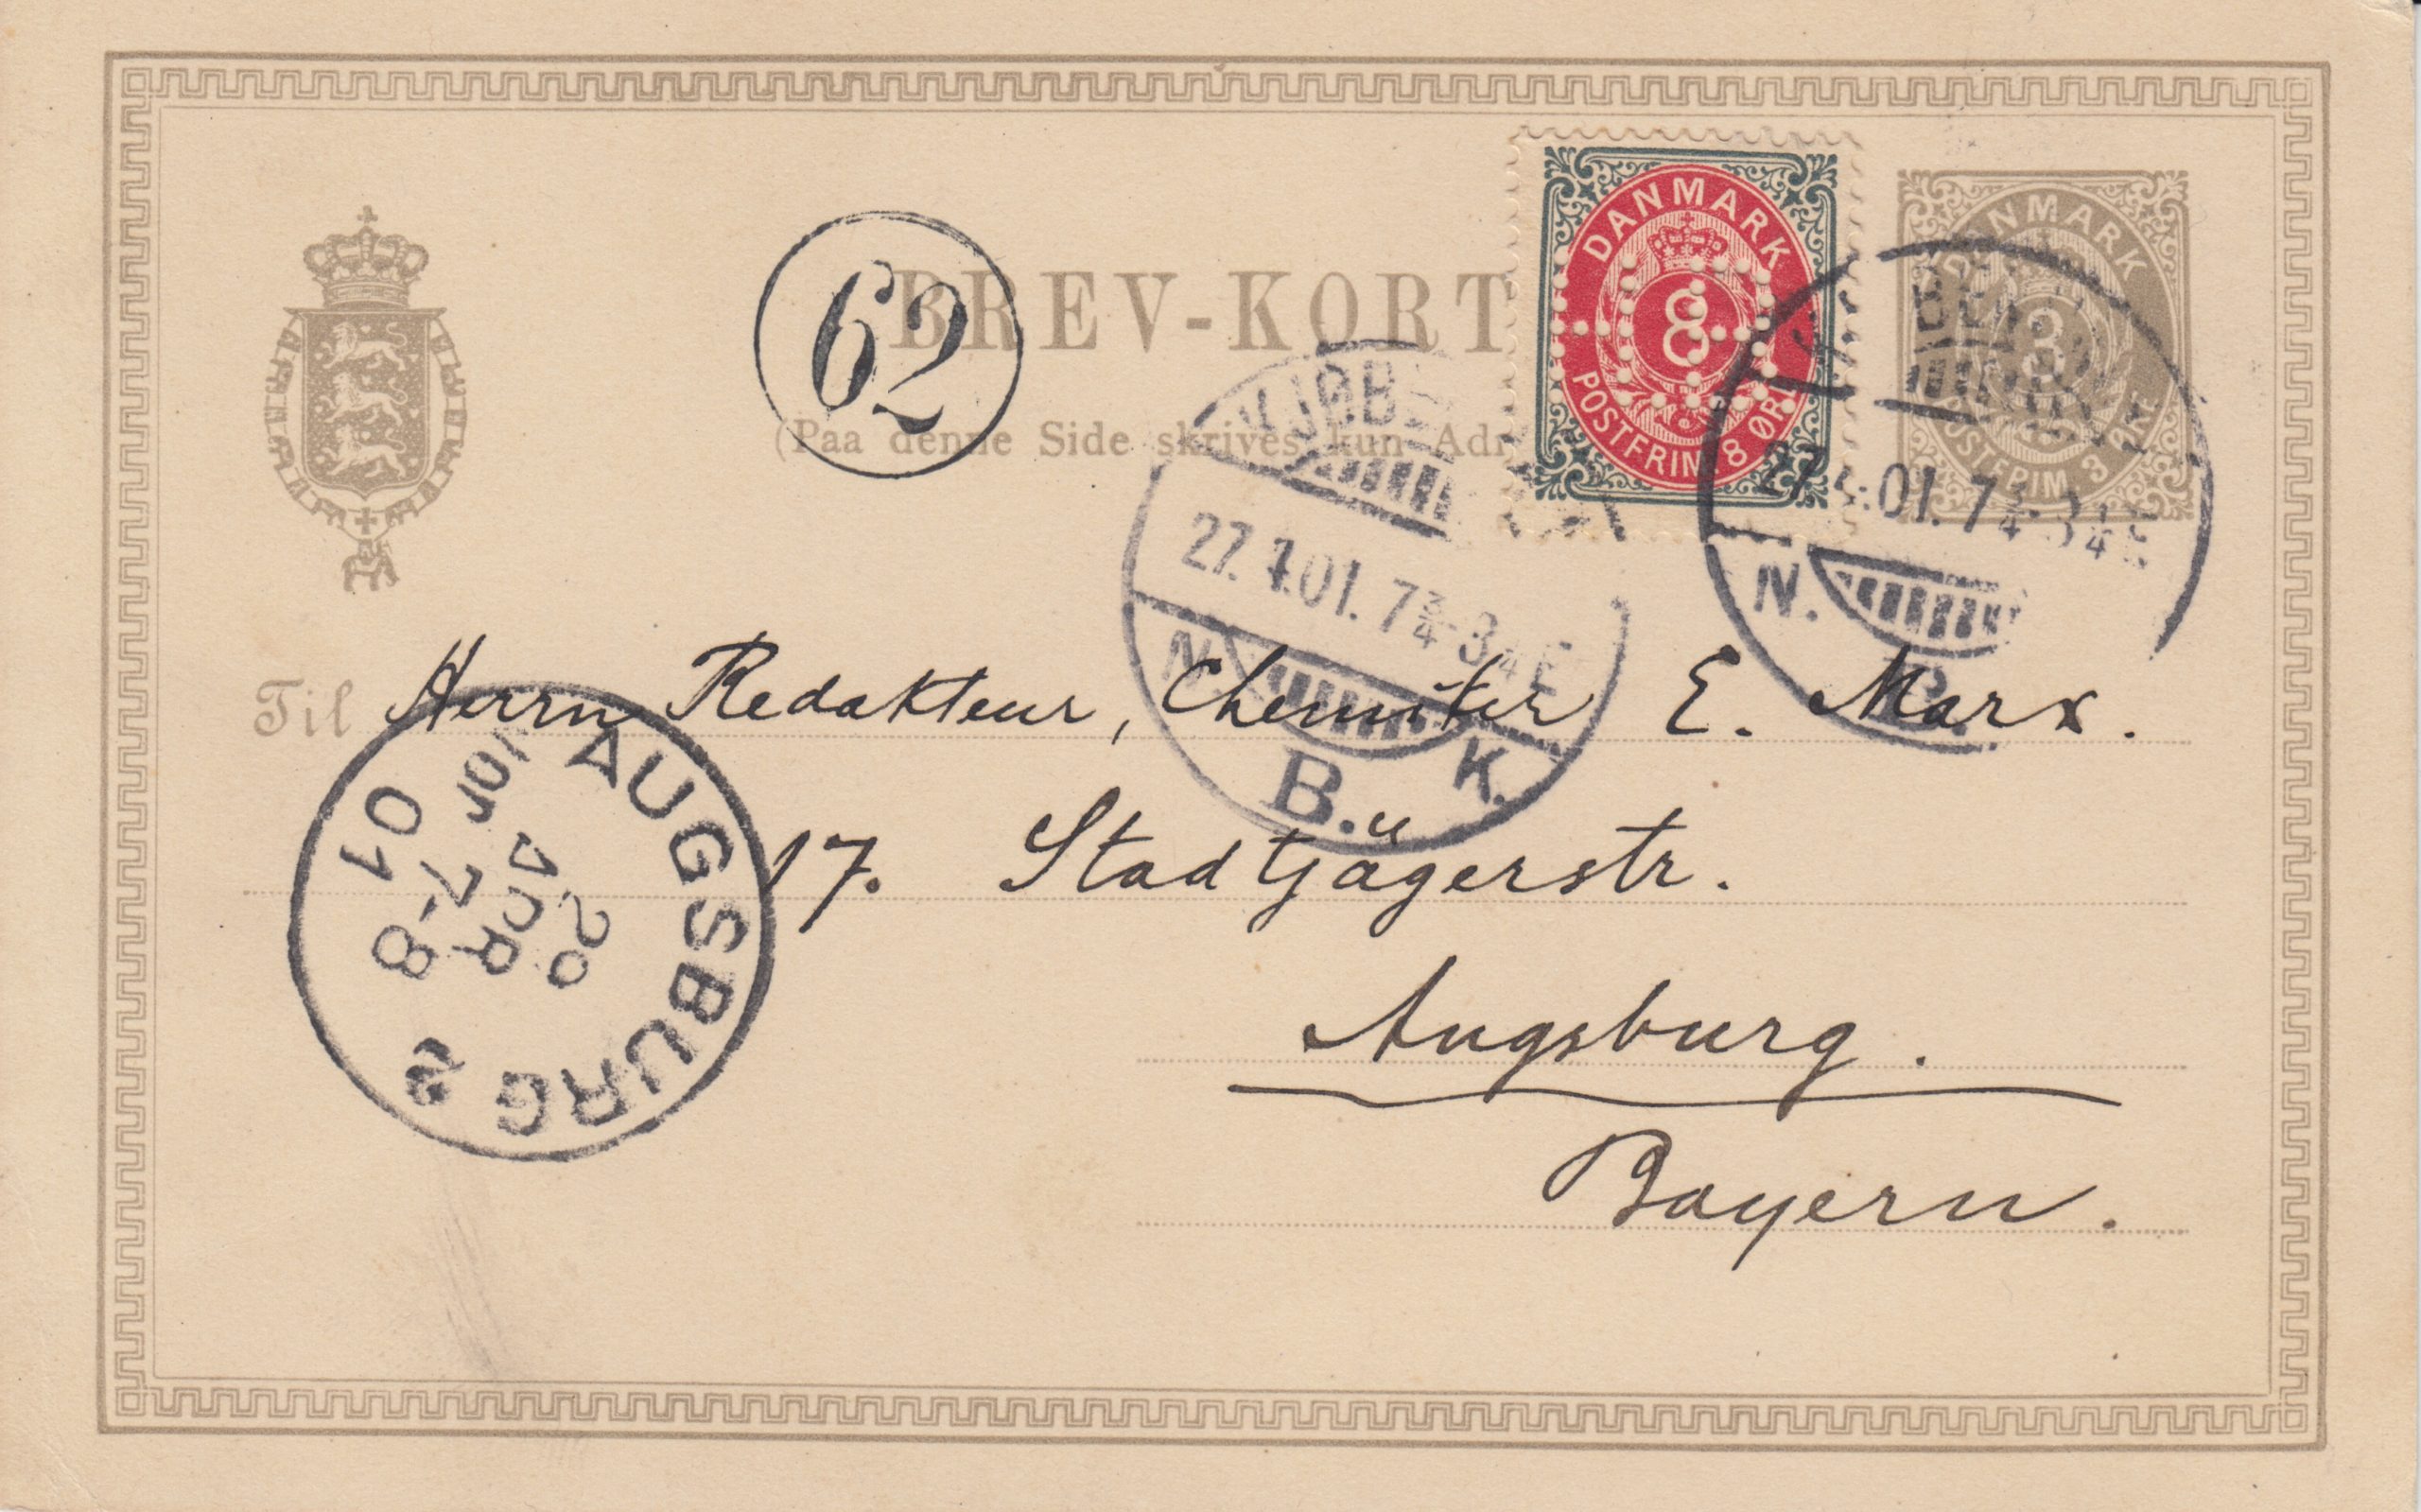 BREV-KORT
(Paa denne Side skrives kun Adr
62
DANMARK
8
POSTFRIM. 8 ØRE
DANMARK
3
POSTFRIM 3 ØRE
KJØB
27. 4.01. 7¾-8¼E
N. B. K.
27.4.01. 7¾-8¼E
N. B.
Til Herrn Redakteur, Chemiker E. Marx.
17. Stadtjägerstr.
Augsburg.
Bayern.
AUGSBURG 2
29
APR
7-8
01